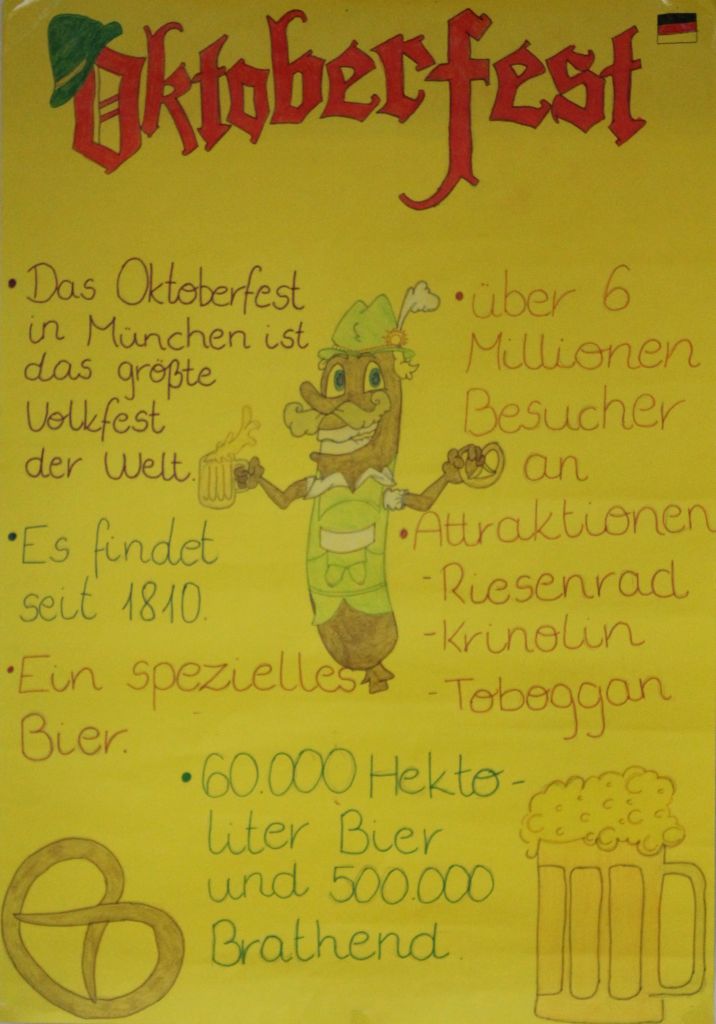 Oktoberfest
• Das Oktoberfest
in München ist
das größte
Volkfest
der Welt.
• Es findet
seit 1810.
• Ein spezielles
Bier.
• über 6
Millionen
Besucher
an
• Attraktionen
- Riesenrad
- Krinolin
- Toboggan
• 60.000 Hekto-
liter Bier
und 500.000
Brathend.